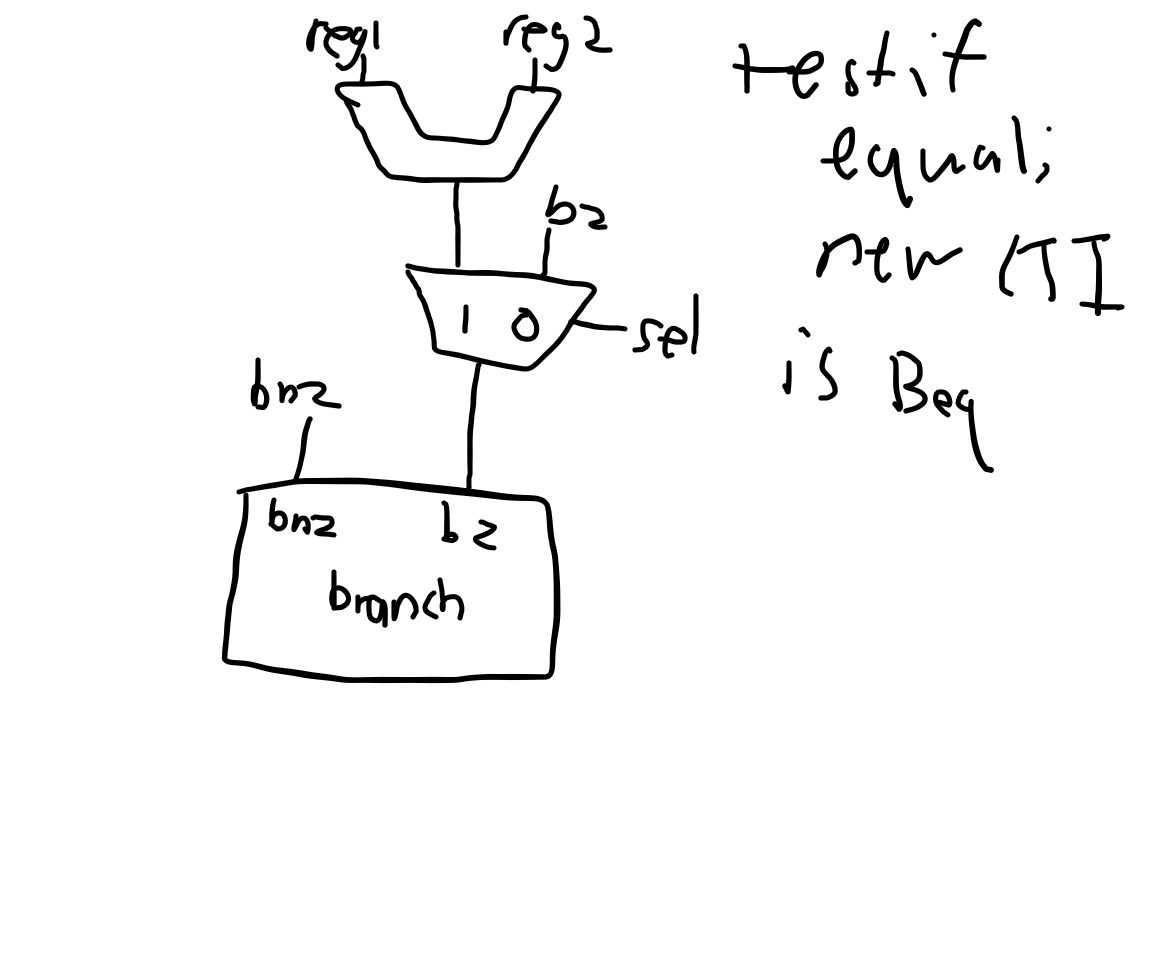 reg1 reg2
bz
1 0
sel
bnz
bnz bz
branch
test if
equal;
new CTI
is Beq